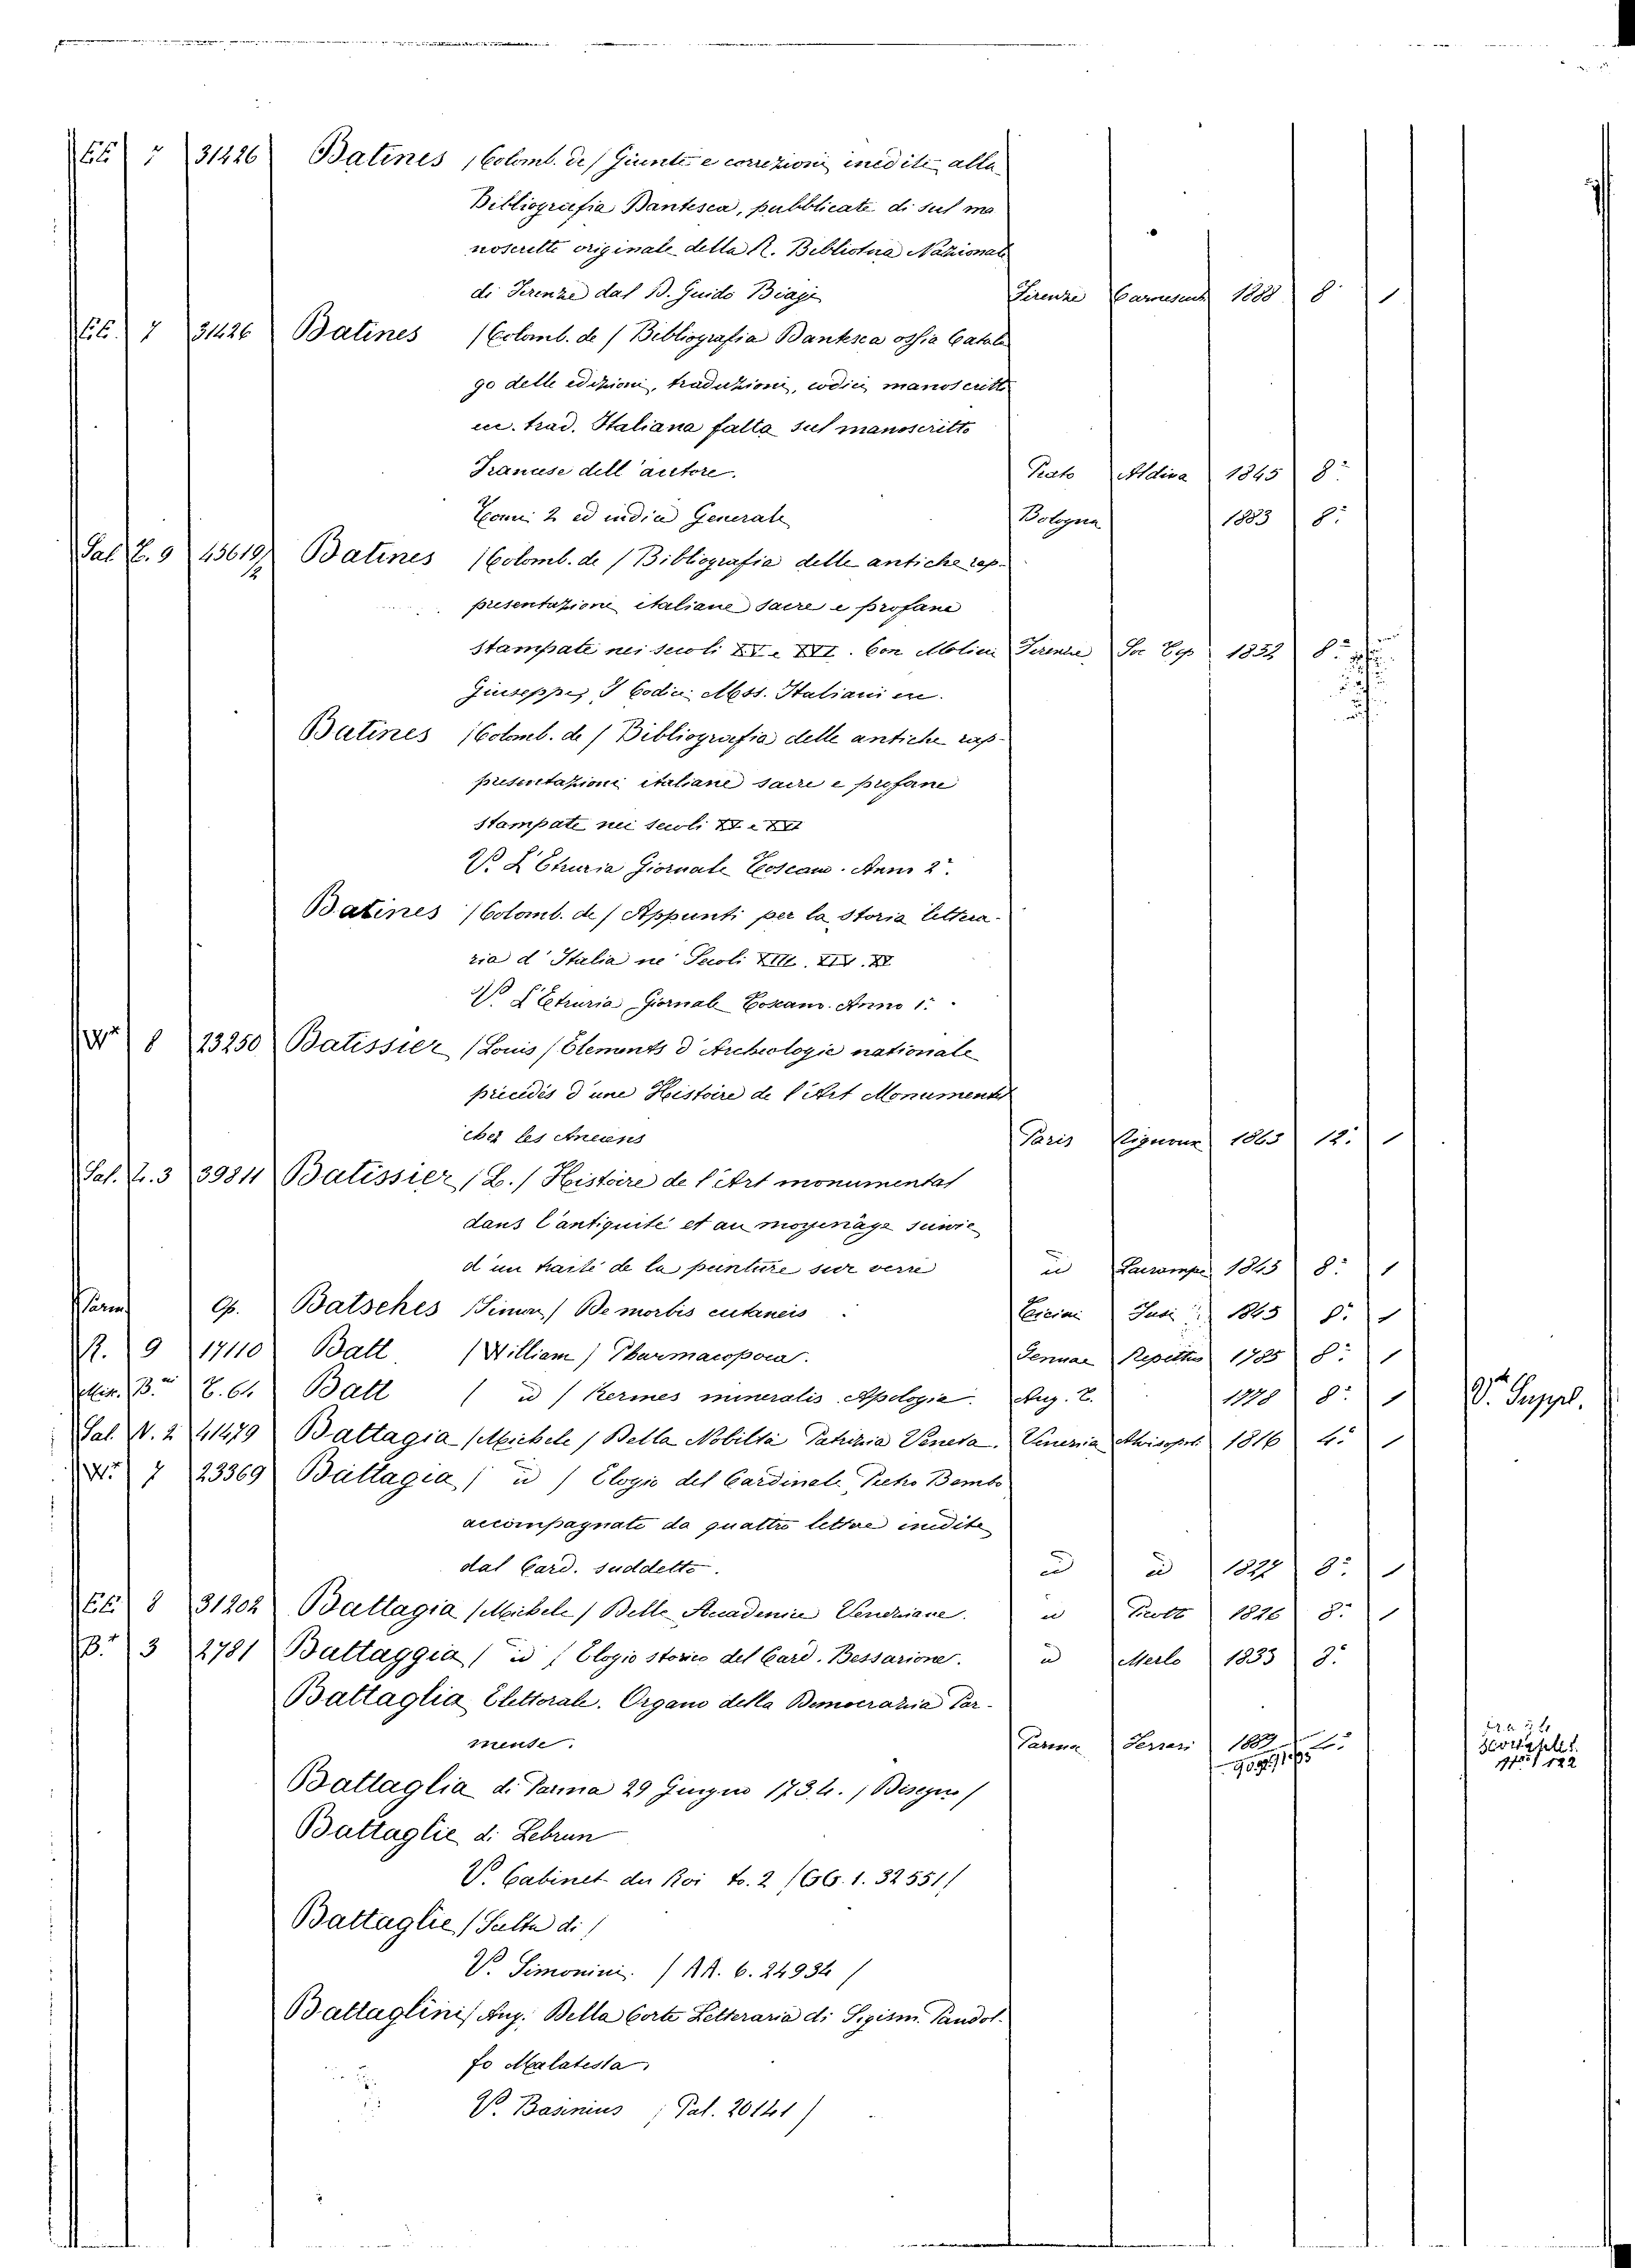 EE 7 31426 Batines (Colomb. de) Giunte e correzioni inedite alla
Bibliografia Dantesca, pubblicate di sul ma
noscritto originale della R. Biblioteca Nazionale
di Firenze dal D. Guido Biagi Firenze Carnesecchi 1888 8° 1
EE. 7 31426 Batines (Colomb. de) Bibliografia Dantesca ossia Catalo
go delle edizioni, traduzioni, codici manoscritti
ec. trad. Italiana fatta sul manoscritto
Francese dell'autore. Prato Aldina 1845 8°
Tomi 2 ed indice Generale Bologna 1883 8°
Pal E. 9 45619/2 Batines (Colomb. de) Bibliografia delle antiche rap-
presentazioni italiane sacre e profane
stampate nei secoli XV e XVI. Con Molini Firenze Soc Tip 1852 8°
Giuseppe, I Codici Mss. Italiani ec.
Batines (Colomb. de) Bibliografia delle antiche rap-
presentazioni italiane sacre e profane
stampate nei secoli XV e XVI
V. L'Etruria Giornale Toscano. Anno 2°.
Batines (Colomb. de) Appunti per la storia lettera-
ria d'Italia ne' Secoli XIII. XIV. XV
V. L'Etruria Giornale Toscano. Anno 1°.
8 23250 Batissier (Louis) Elements d'Archeologie nationale
précédés d'une Histoire de l'Art Monumental
chez les Anciens Paris 1863 12° 1
Sal. 3 39811 Batissier (L.) Histoire de l'Art monumental
dans l'antiquité et au moyenâge suivie
d'un traité de la peinture sur verre id Lacrampe 1845 8° 1
Farm. Op. Batsches (Simon) De morbis cutaneis Ticini Fusi 1845 8° 1
R. 9 17110 Batt (William) Pharmacopoea. Genuae Repetto 1785 8° 1
Min. B. E. 64 Batt (id) Kermes mineralis Apologia. Aug. T. 1778 8° 1 V. Suppl.
Sal. V. 2 41479 Battagia (Michele) Della Nobiltà Patrizia Veneta. Venezia Alvisopoli 1816 4° 1
7 23369 Battagia (id) Elogio del Cardinale Pietro Bembo
accompagnato da quattro lettere inedite
dal Card. suddetto. id id 1827 8° 1
EE 8 31202 Battagia (Michele) Delle Accademie Veneziane. id Picotti 1826 8° 1
B. 3 2781 Battaggia (id) Elogio storico del Card. Bessarione. id Merlo 1833 8°
Battaglia Elettorale. Organo della Democrazia Par-
mense. Parma Ferrari 1889
Battaglia di Parma 29 Giugno 1734. (Disegno)
Battaglie di Lebrun
V. Cabinet du Roi t. 2 (GG. 1. 32551)
Battaglie (Scelta di)
V. Simonini. (AA. 6. 24934)
Battaglini Ang. Della Corte Letteraria di Sigism. Pandol-
fo Malatesta.
V. Basinius (Pal. 20141)